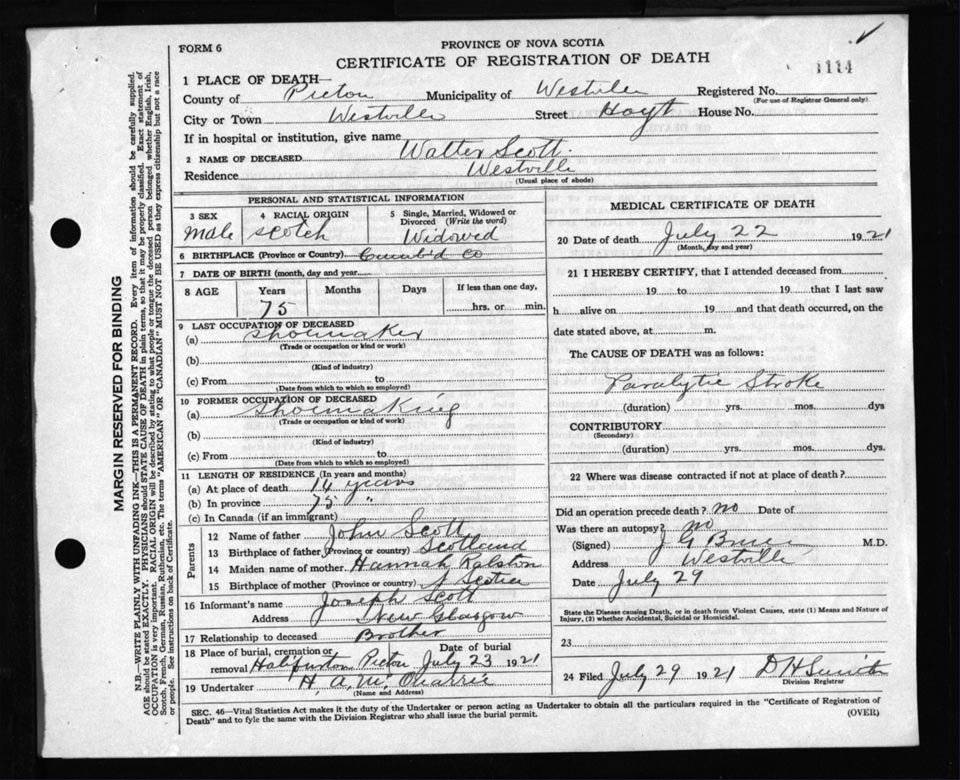 FORM 6
PROVINCE OF NOVA SCOTIA
CERTIFICATE OF REGISTRATION OF DEATH
1114
1 PLACE OF DEATH—
County of Pictou Municipality of Westville Registered No.
(For use of Registrar General only)
City or Town Westville Street Hoyt House No.
If in hospital or institution, give name
2 NAME OF DECEASED Walter Scott.
Residence Westville
(Usual place of abode)
PERSONAL AND STATISTICAL INFORMATION
3 SEX
male
4 RACIAL ORIGIN
Scotch
5 Single, Married, Widowed or Divorced (Write the word)
Widowed
6 BIRTHPLACE (Province or Country) Cumb'd Co
7 DATE OF BIRTH (month, day and year)
8 AGE Years Months Days If less than one day,
75 hrs. or min.
9 LAST OCCUPATION OF DECEASED
(a) Shoemaker
(Trade or occupation or kind or work)
(b)
(Kind of industry)
(c) From to
(Date from which to which so employed)
10 FORMER OCCUPATION OF DECEASED
(a) Shoemaking
(Trade or occupation or kind or work)
(b)
(Kind of industry)
(c) From to
(Date from which to which so employed)
11 LENGTH OF RESIDENCE (In years and months)
(a) At place of death 14 years
(b) In province 75 "
(c) In Canada (if an immigrant)
Parents
12 Name of father John Scott
13 Birthplace of father (Province or country) Scotland
14 Maiden name of mother Hannah Ralston
15 Birthplace of mother (Province or country) N Scotia
16 Informant's name Joseph Scott
Address New Glasgow
17 Relationship to deceased Brother
18 Place of burial, cremation or removal Pictou Date of burial July 23 1921
19 Undertaker H. A.
(Name and Address)
MEDICAL CERTIFICATE OF DEATH
20 Date of death July 22 1921
(Month, day and year)
21 I HEREBY CERTIFY, that I attended deceased from
19 to 19 that I last saw
h alive on 19 and that death occurred, on the
date stated above, at m.
The CAUSE OF DEATH was as follows:
Paralytic Stroke
(duration) yrs. mos. dys
CONTRIBUTORY
(Secondary)
(duration) yrs. mos. dys.
22 Where was disease contracted if not at place of death?
Did an operation precede death? no Date of
Was there an autopsy? no
(Signed) J G M.D.
Address Westville
Date July 29
State the Disease causing Death, or in death from Violent Causes, state (1) Means and Nature of
Injury, (2) whether Accidental, Suicidal or Homicidal.
23
24 Filed July 29 1921 D H Smith
Division Registrar
SEC. 46—Vital Statistics Act makes it the duty of the Undertaker or person acting as Undertaker to obtain all the particulars required in the "Certificate of Registration of
Death" and to fyle the same with the Division Registrar who shall issue the burial permit.
(OVER)
MARGIN RESERVED FOR BINDING
N.B.—WRITE PLAINLY WITH UNFADING INK—THIS IS A PERMANENT RECORD. Every item of information should be carefully supplied.
AGE should be stated EXACTLY. PHYSICIANS should STATE CAUSE OF DEATH in plain terms, so that it may be properly classified. Exact statement of
OCCUPATION is very important. RACIAL ORIGIN will be described by stating to what people or tongue the deceased person belonged whether English, Irish,
Scotch, French, German, Russian, Ruthenian, etc. The terms "AMERICAN" OR "CANADIAN" MUST NOT BE USED as they express citizenship but not a race
or people. See instructions on back of Certificate.